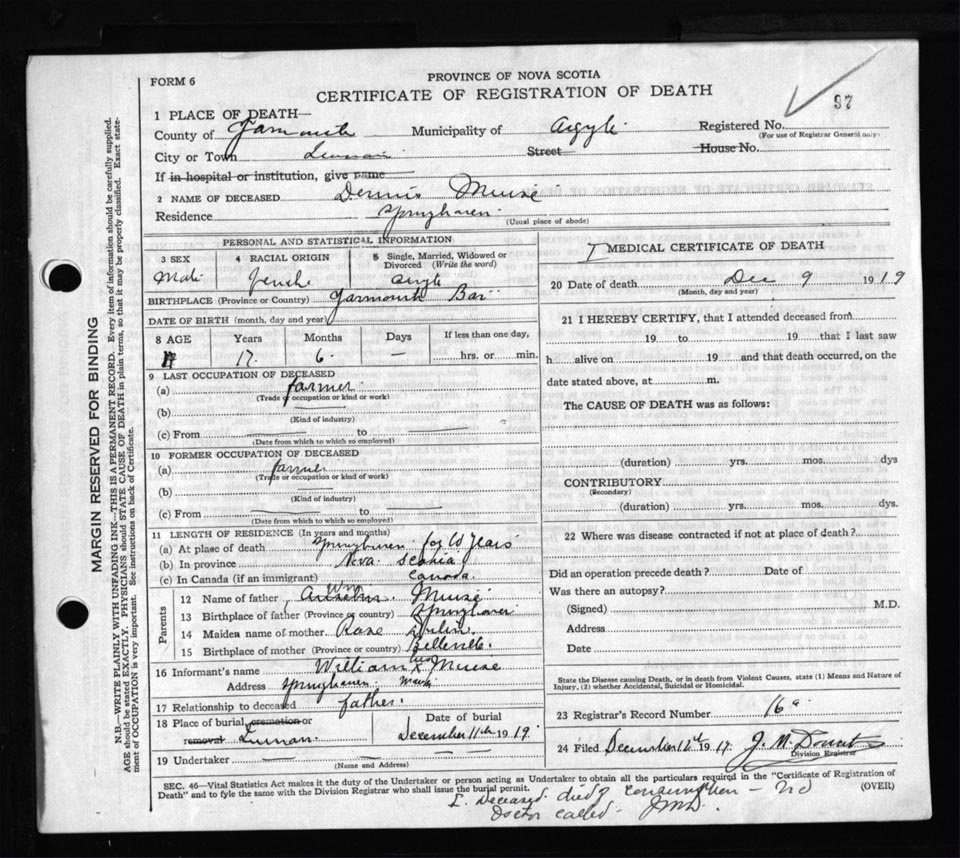 FORM 6
PROVINCE OF NOVA SCOTIA
CERTIFICATE OF REGISTRATION OF DEATH
37
1 PLACE OF DEATH—
County of Yarmouth Municipality of Argyle Registered No.
(For use of Registrar General only)
City or Town Street House No.
If in hospital or institution, give name
2 NAME OF DECEASED Dennis Muise
Residence Springhaven
(Usual place of abode)
PERSONAL AND STATISTICAL INFORMATION
3 SEX 4 RACIAL ORIGIN 5 Single, Married, Widowed or Divorced (Write the word)
Male French Single
BIRTHPLACE (Province or Country) Yarmouth Bar
DATE OF BIRTH (month, day and year)
8 AGE Years Months Days If less than one day,
17 6 — hrs. or min.
9 LAST OCCUPATION OF DECEASED
(a) farmer
(Trade or occupation or kind or work)
(b)
(Kind of industry)
(c) From to
(Date from which to which so employed)
10 FORMER OCCUPATION OF DECEASED
(a) farmer
(Trade or occupation or kind or work)
(b)
(Kind of industry)
(c) From to
(Date from which to which so employed)
11 LENGTH OF RESIDENCE (In years and months)
(a) At place of death Springhaven for 10 years
(b) In province Nova Scotia
(c) In Canada (if an immigrant) Canada
Parents
12 Name of father Muise
13 Birthplace of father (Province or country) Springhaven
14 Maiden name of mother Rose
15 Birthplace of mother (Province or country) Belleville
16 Informant's name William his x Muise
Address Springhaven mark
17 Relationship to deceased father
18 Place of burial, cremation or removal
Date of burial
December 11th 1919
19 Undertaker
(Name and Address)
MEDICAL CERTIFICATE OF DEATH
20 Date of death Dec 9 1919
(Month, day and year)
21 I HEREBY CERTIFY, that I attended deceased from
19 to 19 that I last saw
h alive on 19 and that death occurred, on the
date stated above, at m.
The CAUSE OF DEATH was as follows:
(duration) yrs. mos. dys
CONTRIBUTORY
(Secondary)
(duration) yrs. mos. dys.
22 Where was disease contracted if not at place of death?
Did an operation precede death? Date of
Was there an autopsy?
(Signed) M.D.
Address
Date
State the Disease causing Death, or in death from Violent Causes, state (1) Means and Nature of
Injury, (2) whether Accidental, Suicidal or Homicidal.
23 Registrar's Record Number 16a
24 Filed December 12th 1919 J. M. Doucet
Division Registrar
SEC. 46—Vital Statistics Act makes it the duty of the Undertaker or person acting as Undertaker to obtain all the particulars required in the "Certificate of Registration of
Death" and to fyle the same with the Division Registrar who shall issue the burial permit.
(OVER)
I. Deceased died of consumption — no
Doctor called. JMD.
MARGIN RESERVED FOR BINDING
N.B.—WRITE PLAINLY WITH UNFADING INK—THIS IS A PERMANENT RECORD. Every item of information should be carefully supplied.
AGE should be stated EXACTLY. PHYSICIANS should STATE CAUSE OF DEATH in plain terms, so that it may be properly classified. Exact state-
ment of OCCUPATION is very important. See instructions on back of Certificate.